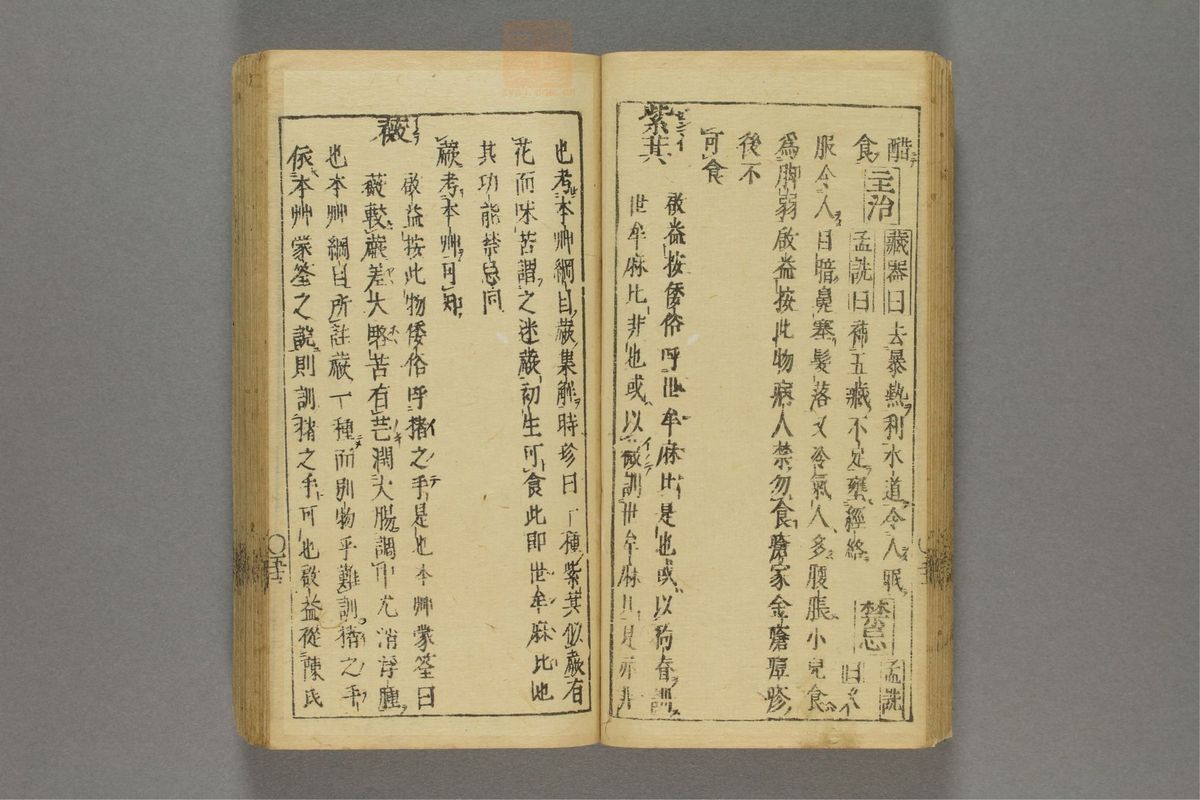 酷食 主治 藏器曰去暴熱利水道令人眠
孟詵曰補五臟不足壅經絡 禁忌 孟詵曰
服令人目暗鼻塞髮落又冷氣人多腹脹小兒食
爲脚弱啟益按此物病人禁勿食瘡家金瘡痘疹
後不
可食
紫萁
啟益按倭俗呼世牟麻比是也或以狗脊訓
世牟麻比非也或以薇訓世牟麻比是亦非
也考本艸綱目蕨集解時珍曰一種紫萁似蕨有
花而味苦謂之迷蕨初生可食此即世牟麻比也
其功能禁忌同
蕨考本艸可知
薇
啟益按此物倭俗呼猪之手是也本艸蒙筌曰
薇較蕨差大畧苦有芒潤大腸調中尤消浮腫
也本艸綱目所註薇一種而別物乎難訓猪之手
依本艸蒙筌之說則訓猪之手可也啟益從陳氏